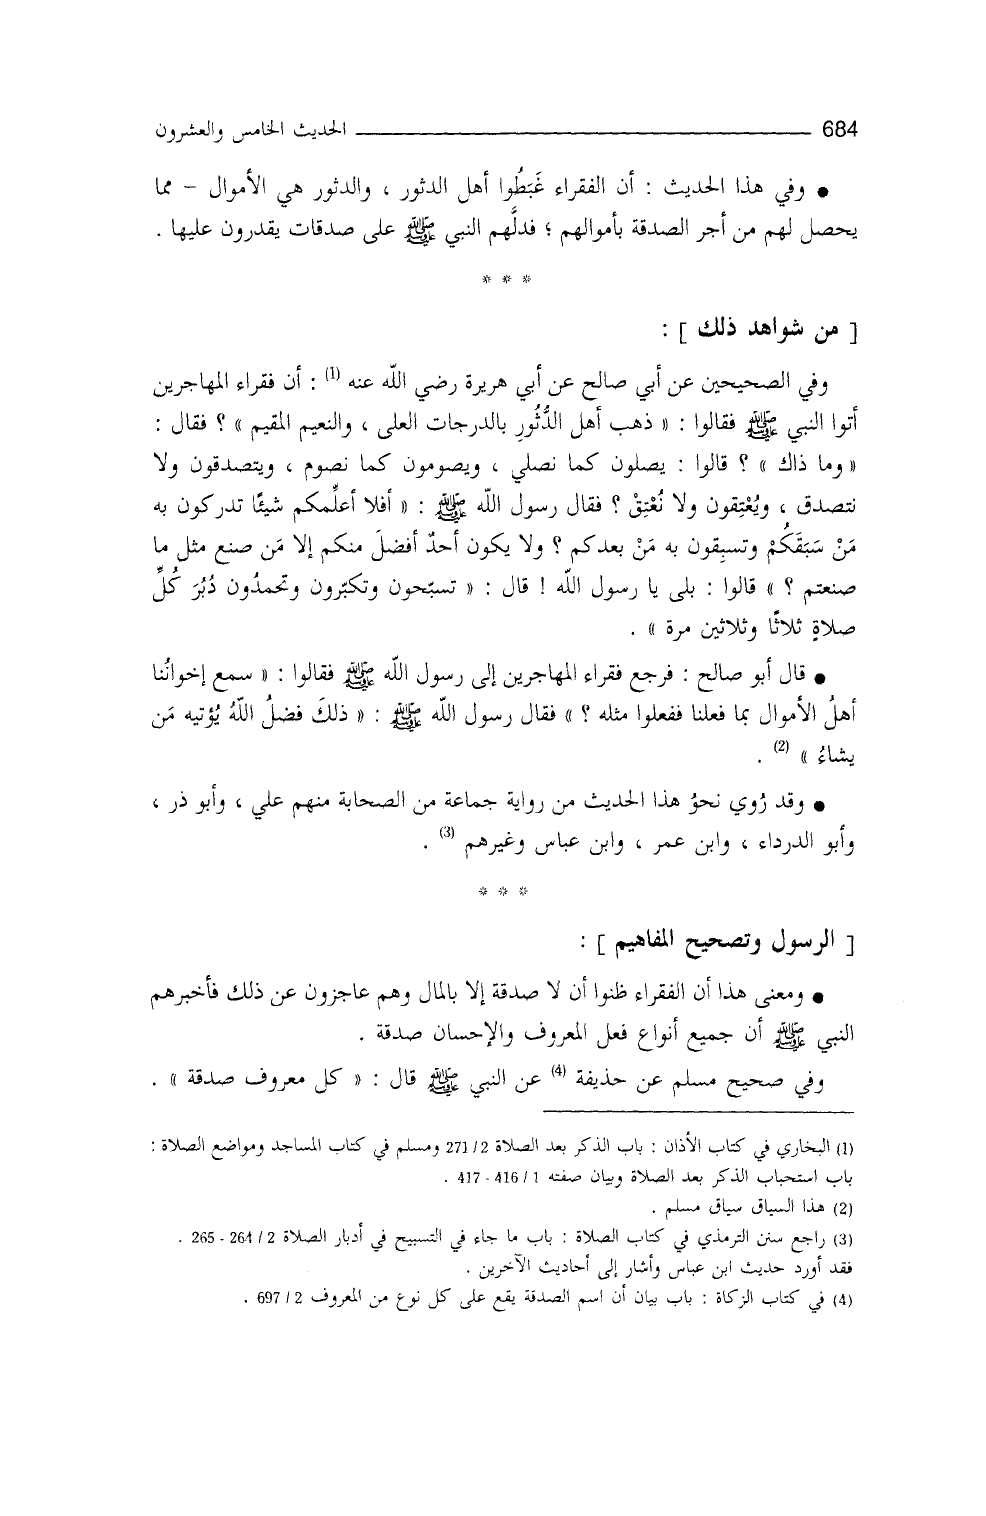 684 الحديث الخامس والعشرون
● وفي هذا الحديث : أن الفقراء غَبَطُوا أهل الدثور ، والدثور هي الأموال – مما
يحصل لهم من أجر الصدقة بأموالهم ؛ فدلَّهم النبي ﷺ على صدقات يقدرون عليها .
* * *
[ من شواهد ذلك ] :
وفي الصحيحين عن أبي صالح عن أبي هريرة رضي اللّه عنه (1) : أن فقراء المهاجرين
أتوا النبي ﷺ فقالوا : « ذهب أهل الدُّثُورِ بالدرجات العلى ، والنعيم المقيم » ؟ فقال :
« وما ذاك » ؟ قالوا : يصلون كما نصلي ، ويصومون كما نصوم ، ويتصدقون ولا
نتصدق ، ويُعْتِقون ولا نُعْتِقْ ؟ فقال رسول اللّه ﷺ : « أفلا أعلِّمكم شيئًا تدركون به
مَنْ سَبَقَكُمْ وتسبِقون به مَنْ بعدكم ؟ ولا يكون أحدٌ أفضلَ منكم إلا مَن صنع مثل ما
صنعتم ؟ » قالوا : بلى يا رسول اللّه ! قال : « تسبّحون وتكبّرون وتحمدُون دُبُرَ كُلِّ
صلاةٍ ثلاثًا وثلاثين مرة » .
● قال أبو صالح : فرجع فقراء المهاجرين إلى رسول اللّه ﷺ فقالوا : « سمع إخوانُنا
أهلُ الأموال بما فعلنا ففعلوا مثله ؟ » فقال رسول اللّه ﷺ : « ذلكَ فضلُ اللّهُ يُؤتيه مَن
يشاءُ » (2) .
● وقد رُوي نحوُ هذا الحديث من رواية جماعة من الصحابة منهم علي ، وأبو ذر ،
وأبو الدرداء ، وابن عمر ، وابن عباس وغيرهم (3) .
* * *
[ الرسول وتصحيح المفاهيم ] :
● ومعنى هذا أن الفقراء ظنوا أن لا صدقة إلا بالمال وهم عاجزون عن ذلك فأخبرهم
النبي ﷺ أن جميع أنواع فعل المعروف والإحسان صدقة .
وفي صحيح مسلم عن حذيفة (4) عن النبي ﷺ قال : « كل معروف صدقة » .
(1) البخاري في كتاب الأذان : باب الذكر بعد الصلاة 2/ 271 ومسلم في كتاب المساجد ومواضع الصلاة :
باب استحباب الذكر بعد الصلاة وبيان صفته 1/ 416 - 417 .
(2) هذا السياق سياق مسلم .
(3) راجع سنن الترمذي في كتاب الصلاة : باب ما جاء في التسبيح في أدبار الصلاة 2/ 264 - 265 .
فقد أورد حديث ابن عباس وأشار إلى أحاديث الآخرين .
(4) في كتاب الزكاة : باب بيان أن اسم الصدقة يقع على كل نوع من المعروف 2/ 697 .